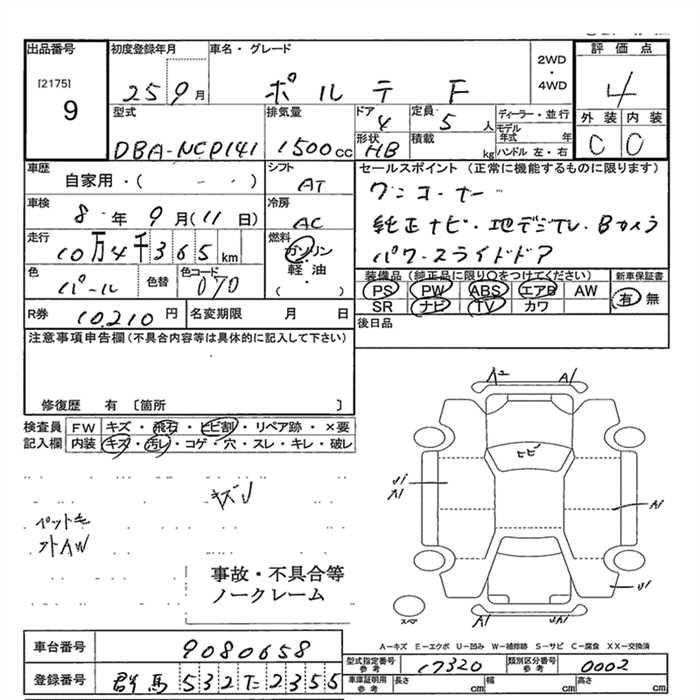 出品番号
[2175]
9
初度登録年月
25 9月
車名・グレード
ポルテ F
2WD
・
4WD
評価点
4
外装 内装
C C
型式
DBA-NCP141
排気量
1500cc
ドア
4
定員
5人
形状
HB
積載
kg
ディーラー・並行
モデル年式 年
ハンドル 左・右
車歴
自家用・( )
シフト
AT
セールスポイント (正常に機能するものに限ります)
ワンオーナー
純正ナビ・地デジTV・Bカメラ
パワースライドドア
車検
8年 9月(11日)
冷房
AC
走行
10万4千365km
燃料
ガソリン
・
軽油
( ・ )
色
パール
色替
色コード
070
装備品 (純正品に限り○をつけてください)
PS PW ABS エアB AW
SR ナビ TV カワ
新車保証書
有 無
R券 10,210円
名変期限 月 日
後日品
注意事項申告欄 (不具合内容等は具体的に記入して下さい)
修復歴 有 〔箇所 〕
検査員記入欄
FW キズ・飛石・ヒビ割・リペア跡・×要
内装 キズ・汚レ・コゲ・穴・スレ・キレ・破レ
ペット毛
外AW
事故・不具合等
ノークレーム
A2 A1
ヒビ
U1
A1
A1
U1
A1 A1 U1
スペア
A-キズ E-エクボ U-凹み W-補修跡 S-サビ C-腐食 XX-交換済
車台番号 9080658
登録番号 群馬 532 た 2355
型式指定番号 参考 17320
類別区分番号 参考 0002
車庫証明用 参考 長さ cm 幅 cm 高さ cm